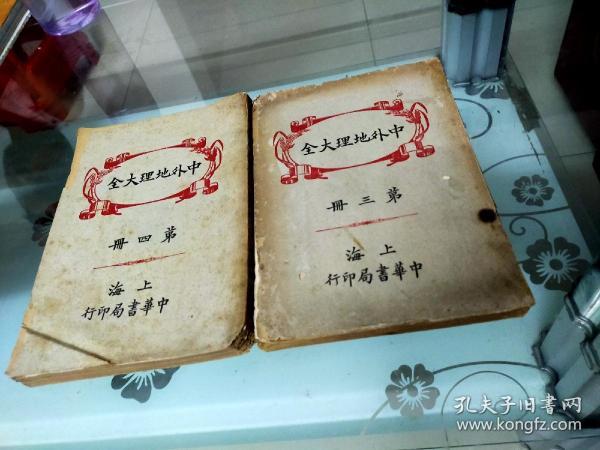 全大理地外中
册四第
海上
行印局書華中
全大理地外中
册三第
海上
行印局書華中
孔夫子旧書网
www.kongfz.com